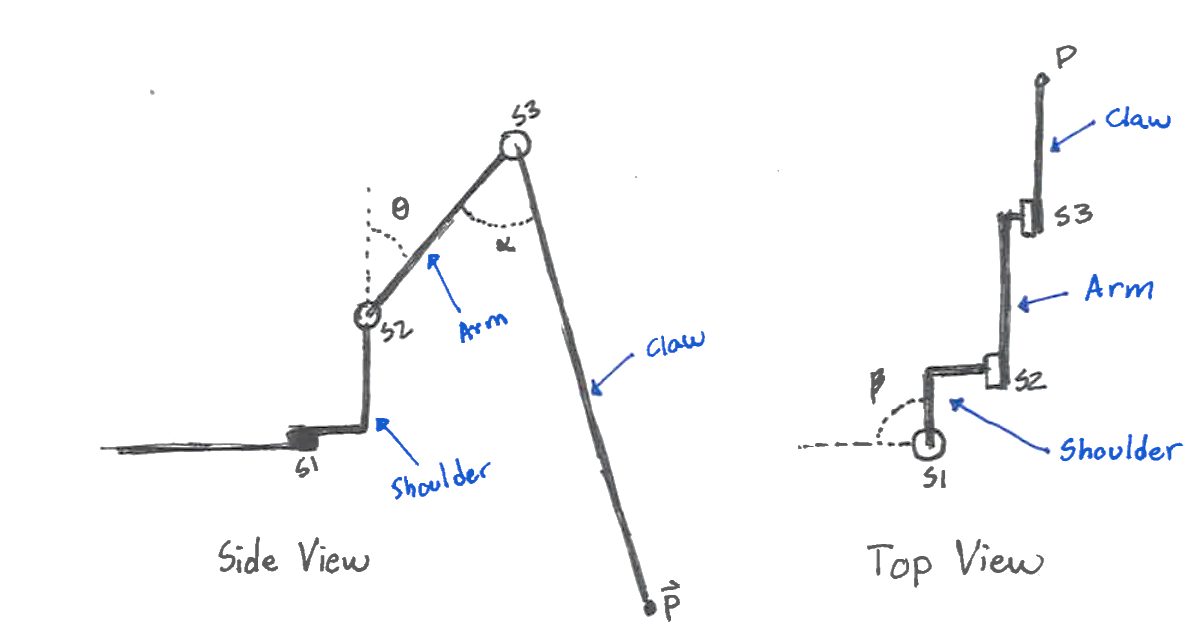 S3
θ
α
S2
Arm
Claw
S1
Shoulder
P
Side View
P
Claw
S3
Arm
S2
β
Shoulder
S1
Top View